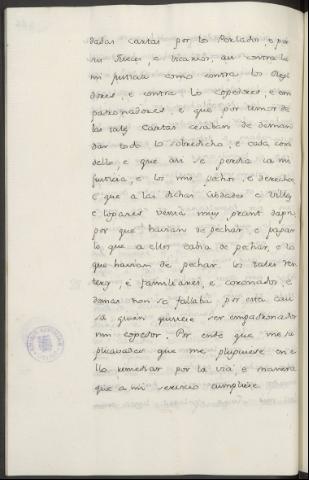 dadas cartas por los Perlados e por
sus Jueces, e vicarios, asi contra la
mi justicia como contra los Regi
dores, e contra los cojedores, e em
patronadores, e que por temor de
las tales cartas cesaban de deman
dar todo lo sobredicho, e cada cosa
dello, e que asi se perdia la mi
justicia, e los mis pechos, e derechos
e que a las dichas Cibdades e Villas
e logares venia muy grant dapno,
por que habian de pechar, e pagar
lo que a ellos cabia de pechar, e lo
que habian de pechar los tales ren
teros, e familiares, e coronados, e
demas non se fallaba, por esta cau
sa quien quisiese ser empadronador
nin cogedor. Por ende que me su
plicabades que me pluguiese en e
llo remediar por la via, e manera
que a mi servicio cumpliese